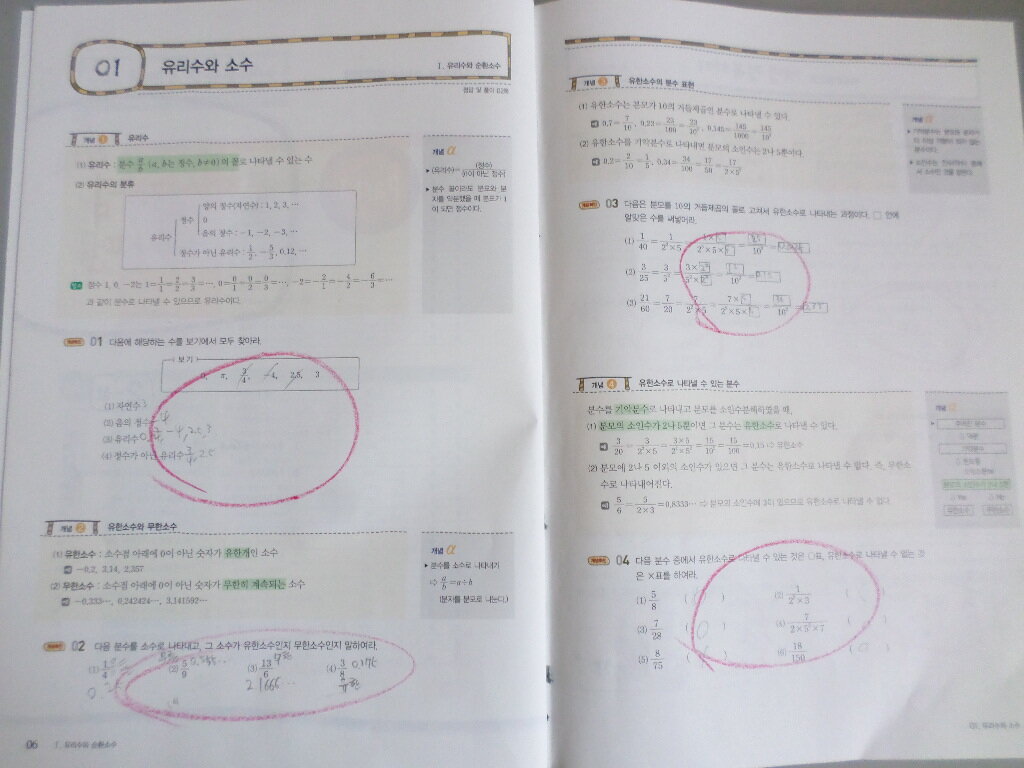 01 유리수와 소수
I. 유리수와 순환소수
정답 및 풀이 02쪽
개념 1 유리수
(1) 유리수 : 분수 a/b (a, b는 정수, b≠0)의 꼴로 나타낼 수 있는 수
(2) 유리수의 분류
유리수
정수
양의 정수(자연수) : 1, 2, 3, …
0
음의 정수 : -1, -2, -3, …
정수가 아닌 유리수 : 1/2, -5/3, 0.12, …
정수 1, 0, -2는 1=1/1=2/2=3/3=…, 0=0/1=0/2=0/3=…, -2=-2/1=-4/2=-6/3=…
과 같이 분수로 나타낼 수 있으므로 유리수이다.
개념 α
(유리수)=(정수)/(0이 아닌 정수)
분수 꼴이라도 분모와 분
자를 약분했을 때 분모가 1
이 되면 정수이다.
01 다음에 해당하는 수를 보기에서 모두 찾아라.
보기
0, π, 3/4, -4, 2.5, 3
(1) 자연수 3
(2) 음의 정수 -4
(3) 유리수
(4) 정수가 아닌 유리수 3/4, 2.5
개념 2 유한소수와 무한소수
(1) 유한소수 : 소수점 아래에 0이 아닌 숫자가 유한개인 소수
-0.2, 3.14, 2.357
(2) 무한소수 : 소수점 아래에 0이 아닌 숫자가 무한히 계속되는 소수
-0.333…, 0.242424…, 3.141592…
개념 α
분수를 소수로 나타내기
⇨ a/b=a÷b
(분자를 분모로 나눈다.)
02 다음 분수를 소수로 나타내고, 그 소수가 유한소수인지 무한소수인지 말하여라.
(2) 5/9
(3) 13/6
(4) 3/8
06 I. 유리수와 순환소수
개념 3 유한소수의 분수 표현
(1) 유한소수는 분모가 10의 거듭제곱인 분수로 나타낼 수 있다.
0.7=7/10, 0.23=23/100=23/10², 0.145=145/1000=145/10³
(2) 유한소수를 기약분수로 나타내면 분모의 소인수는 2나 5뿐이다.
0.2=2/10=1/5, 0.34=34/100=17/50=17/(2×5²)
개념 α
03 다음은 분모를 10의 거듭제곱의 꼴로 고쳐서 유한소수로 나타내는 과정이다. □ 안에
알맞은 수를 써넣어라.
(1) 1/40=1/(2³×5)
(2) 3/25=3/5²
(3) 21/60=7/20=7/(2²×5)
개념 4 유한소수로 나타낼 수 있는 분수
분수를 기약분수로 나타내고 분모를 소인수분해하였을 때,
(1) 분모의 소인수가 2나 5뿐이면 그 분수는 유한소수로 나타낼 수 있다.
3/20=3/(2²×5)=(3×5)/(2²×5²)=15/10²=15/100=0.15 ⇨ 유한소수
(2) 분모에 2나 5 이외의 소인수가 있으면 그 분수는 유한소수로 나타낼 수 없다. 즉, 무한소
수로 나타내어진다.
5/6=5/(2×3)=0.8333… ⇨ 분모의 소인수에 3이 있으므로 유한소수로 나타낼 수 없다.
개념 α
기약분수
04 다음 분수 중에서 유한소수로 나타낼 수 있는 것은 ○표, 유한소수로 나타낼 수 없는 것
은 ×표를 하여라.
(1) 5/8 ( )
(2) 1/(2²×3)
(3) 7/28 ( )
(4) 7/(2×5×7)
(5) 8/75 ( )
(6) 18/150
01. 유리수와 소수